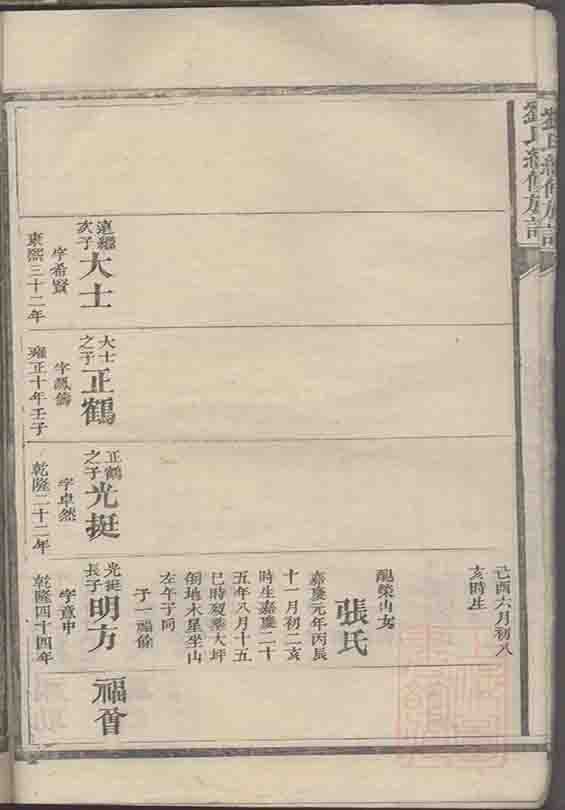 劉氏續修族譜
己酉六月初八
亥時生
張氏
配榮山女
嘉慶元年丙辰
十一月初二亥
時生嘉慶二十
五年八月十五
巳時歿葬大坪
倒地木星坐山
左午子向
子一福會
連繼
次子
大士
字希賢
康熙三十二年
大士
之子
正鶴
雍正十年壬子
正鶴
之子
光挺
字卓然
乾隆二十二年
光挺
長子
明方
字意中
乾隆四十四年
福會